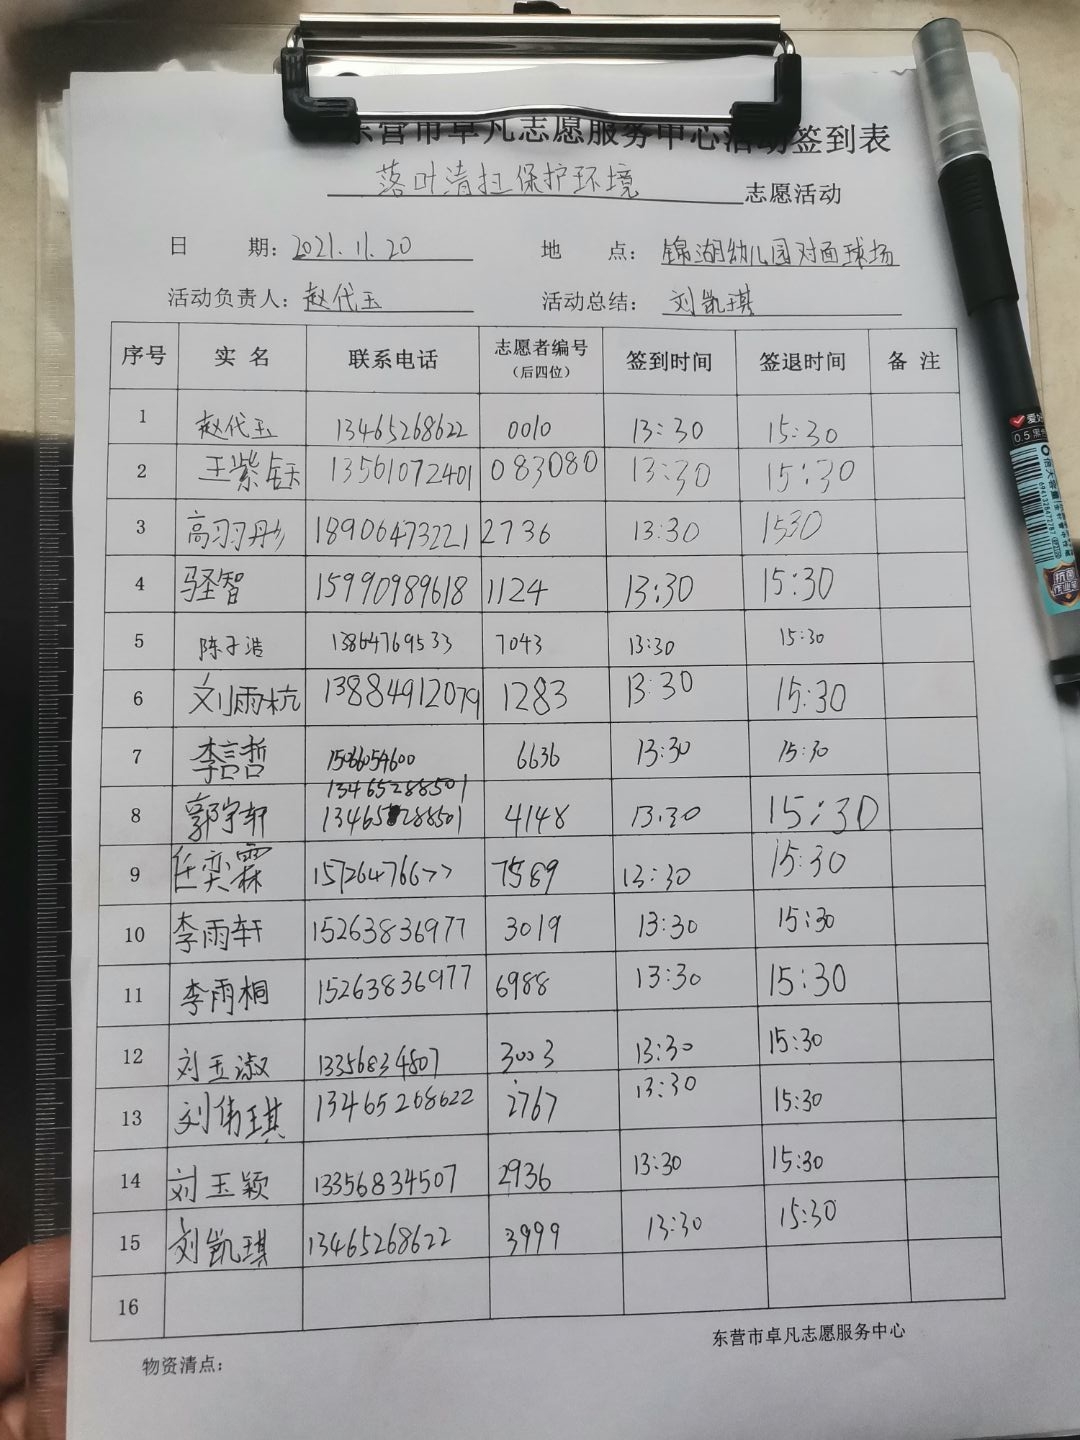 东营市卓凡志愿服务中心活动签到表
落叶清扫保护环境 志愿活动
日 期: 2021.11.20 地 点: 锦湖幼儿园对面球场
活动负责人: 赵代玉 活动总结: 刘凯琪
序号 实 名 联系电话 志愿者编号 (后四位) 签到时间 签退时间 备 注
1 赵代玉 13465268622 0010 13:30 15:30
2 王紫钰 13561072401 083080 13:30 15:30
3 高羽彤 18906473221 2736 13:30 1530
4 智 15990989618 1124 13:30 15:30
5 陈子浩 13864769533 7043 13:30 15:30
6 刘雨杭 13884912079 1283 13:30 15:30
7 李言哲 6636 13:30 15:30
13465288501
8 郭宇轩 13465288501 4148 13:30 15:30
9 任奕霖 15726476677 7589 13:30 15:30
10 李雨轩 15263836977 3019 13:30 15:30
11 李雨桐 15263836977 6988 13:30 15:30
12 刘玉淑 13356834507 3003 13:30 15:30
13 刘伟琪 13465268622 2767 13:30 15:30
14 刘玉颖 13356834507 2936 13:30 15:30
15 刘凯琪 13465268622 3999 13:30 15:30
16
东营市卓凡志愿服务中心
物资清点: